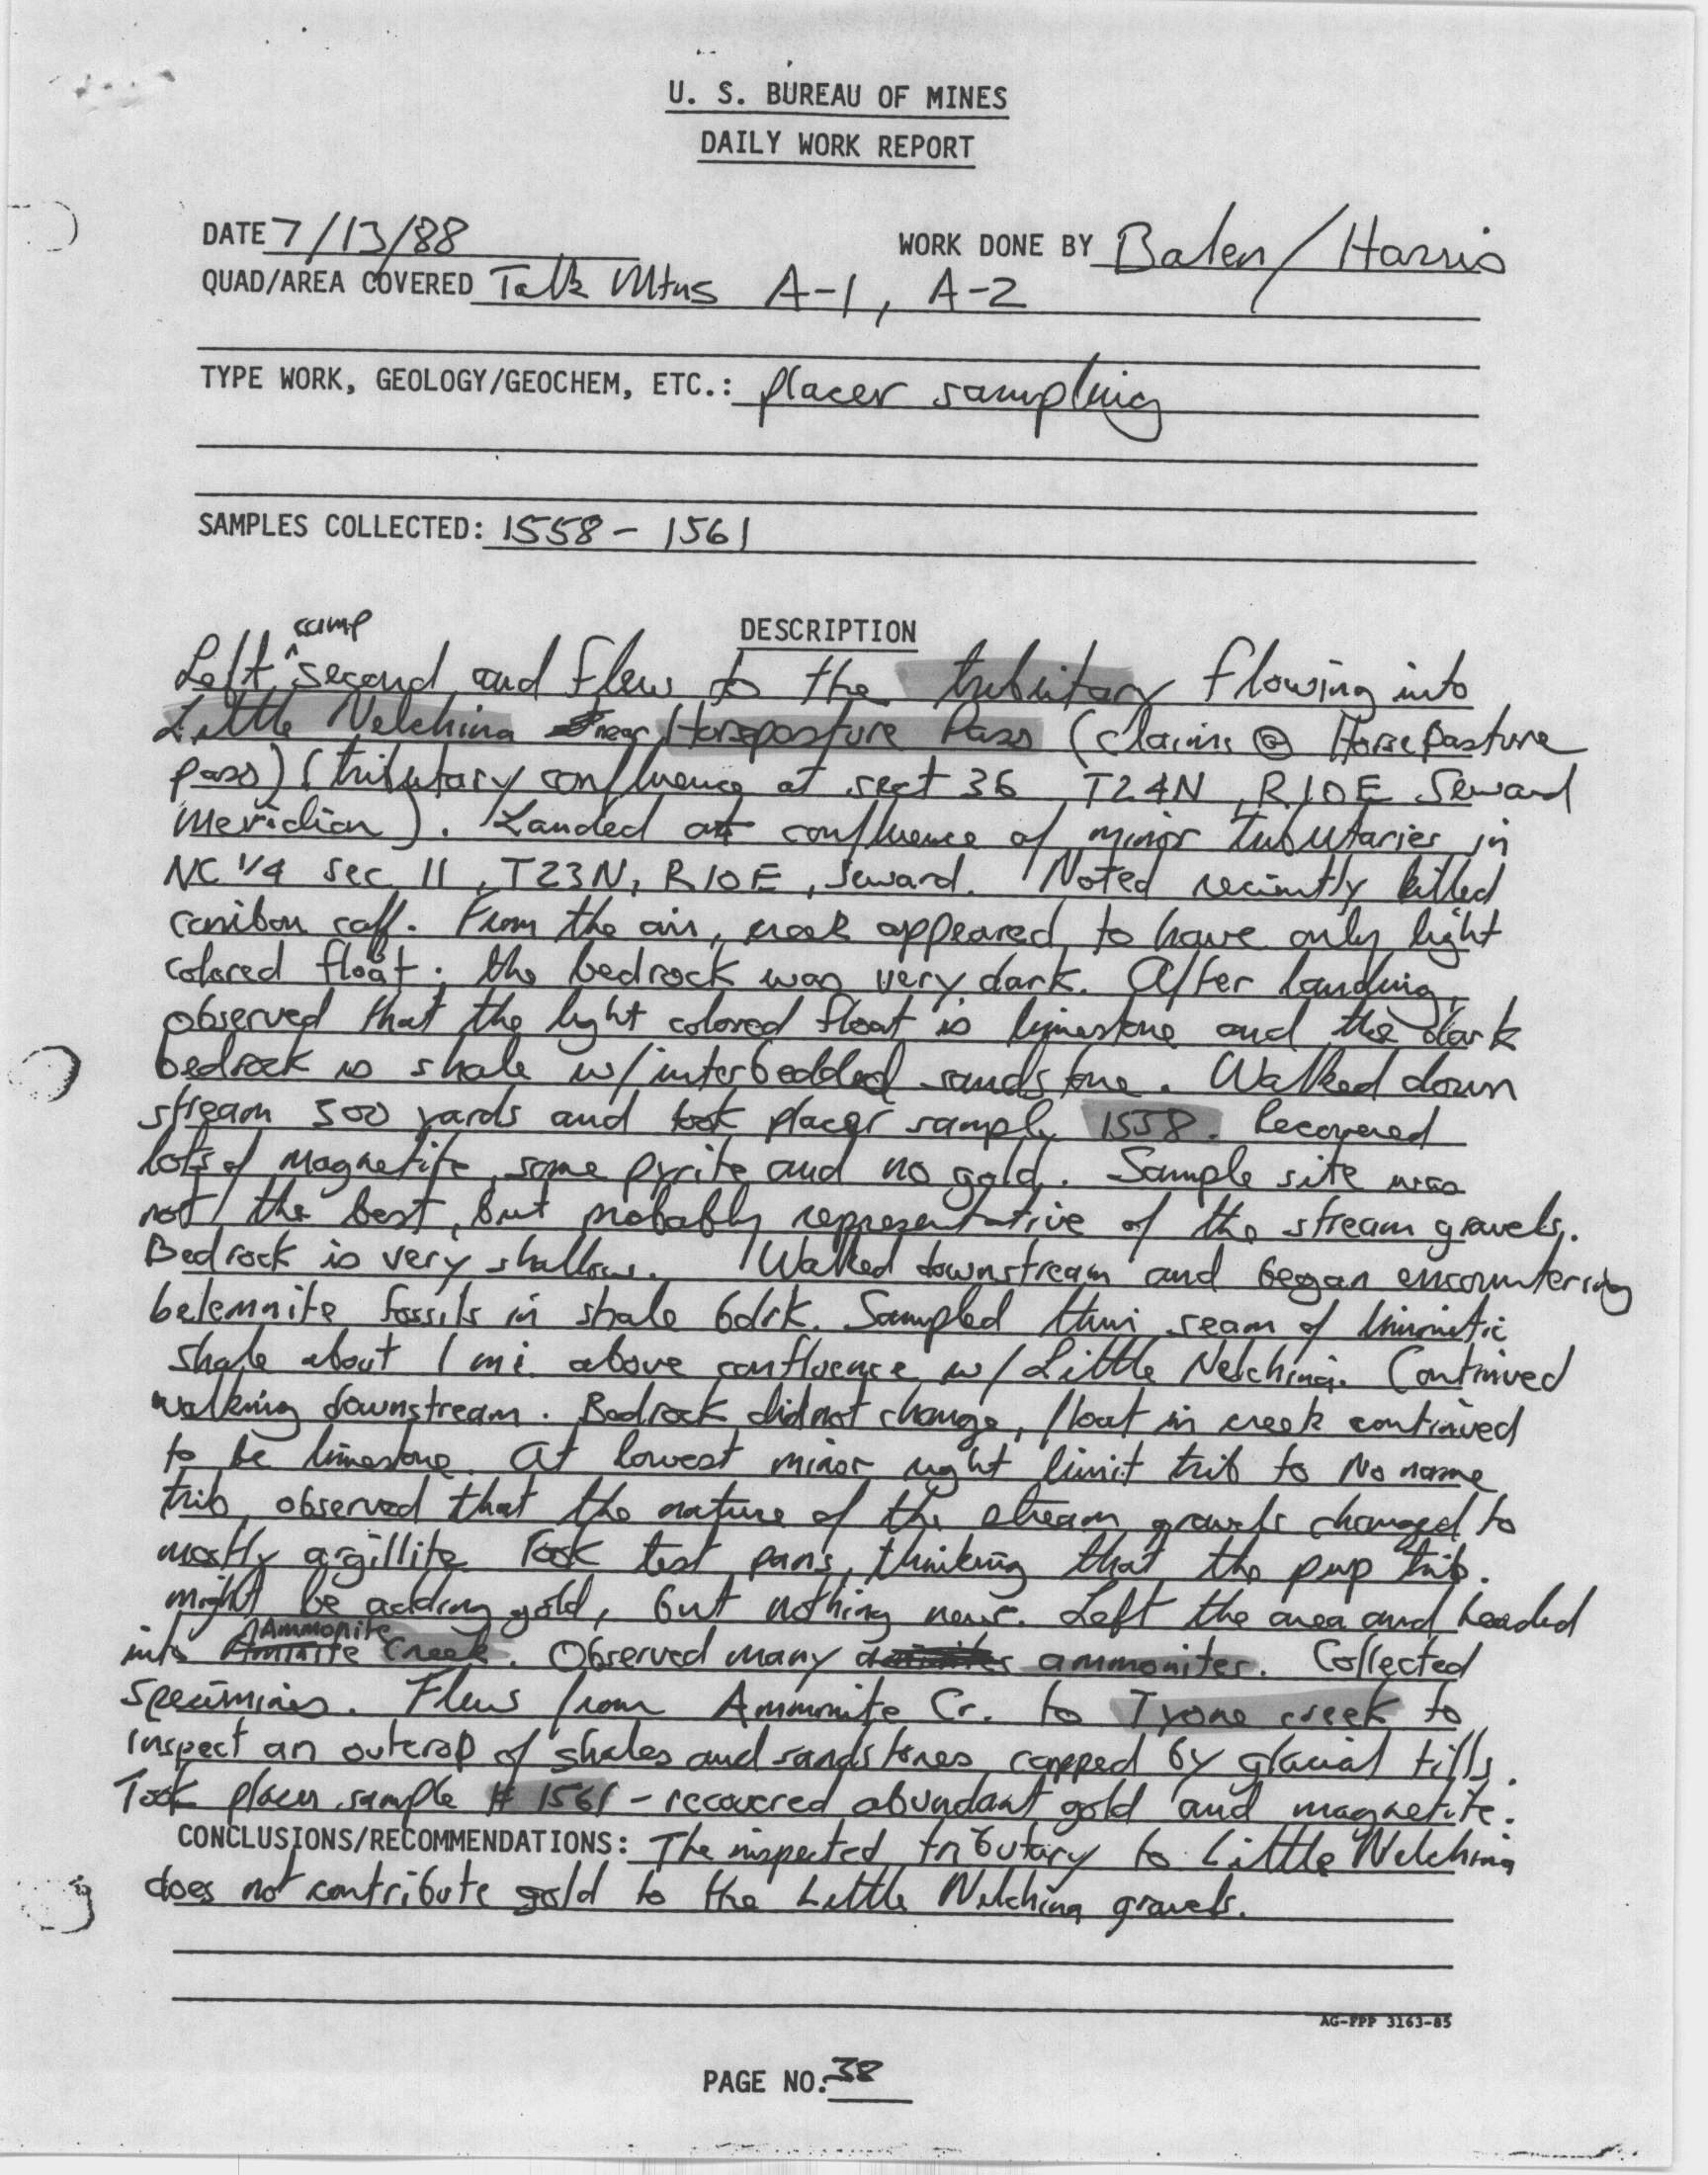 U. S. BUREAU OF MINES
DAILY WORK REPORT
DATE 7/13/88 WORK DONE BY Balen/Harris
QUAD/AREA COVERED Talk Mtns A-1, A-2
TYPE WORK, GEOLOGY/GEOCHEM, ETC.: placer sampling
SAMPLES COLLECTED: 1558 - 1561
DESCRIPTION
Left ^camp second and flew to the tributary flowing into
Little Nelchina near Horsepasture Pass (claims @ Horsepasture
pass) (tributary confluence at sect 36 T24N, R10E Seward
Meridian). Landed at confluence of minor tributaries in
NC 1/4 sec 11, T23N, R10E, Seward. Noted recently killed
caribou calf. From the air, creek appeared to have only light
colored float; the bedrock was very dark. After landing,
observed that the light colored float is limestone and the dark
bedrock is shale w/interbedded sandstone. Walked down
stream 300 yards and took placer sample 1558. Recovered
lots of magnetite, some pyrite and no gold. Sample site was
not the best, but probably representative of the stream gravels.
Bedrock is very shallow. Walked downstream and began encountering
belemnite fossils in shale bdrk. Sampled thin seam of limonitic
shale about 1 mi. above confluence w/ Little Nelchina. Continued
walking downstream. Bedrock did not change, float in creek continued
to be limestone. At lowest minor right limit trib to No name
trib, observed that the nature of the stream gravels changed to
mostly argillite. Took test pans, thinking that the pup trib.
might be adding gold, but nothing new. Left the area and headed
into Ammonite Creek. Observed many ammonites. Collected
specimins. Flew from Ammonite Cr. to Tyone creek to
inspect an outcrop of shales and sandstones capped by glacial tills.
Took placer sample # 1561 - recovered abundant gold and magnetite.
CONCLUSIONS/RECOMMENDATIONS: The inspected tributary to Little Nelchina
does not contribute gold to the Little Nelchina gravels.
AG-FPP 3163-85
PAGE NO. 38